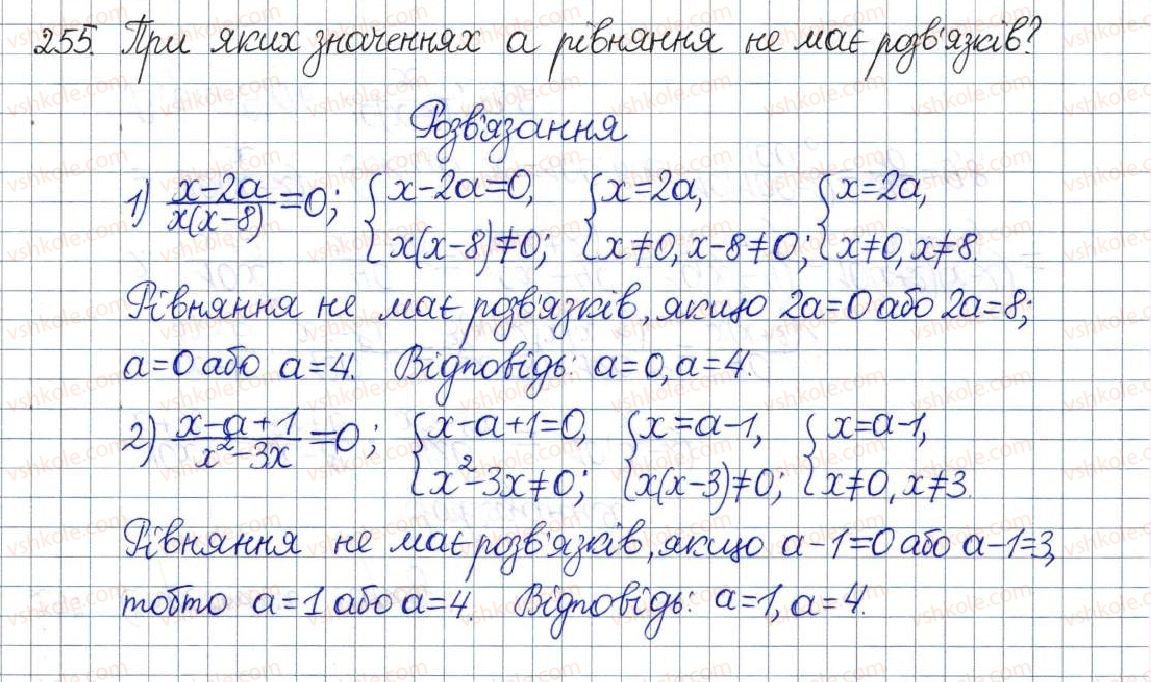 255. При яких значеннях a рівняння не має розв'язків?
Розв'язання
1) (x-2a)/(x(x-8)) = 0; { x-2a=0, x(x-8)≠0; { x=2a, x≠0, x-8≠0; { x=2a, x≠0, x≠8.
Рівняння не має розв'язків, якщо 2a=0 або 2a=8;
a=0 або a=4. Відповідь: a=0, a=4.
2) (x-a+1)/(x²-3x) = 0; { x-a+1=0, x²-3x≠0; { x=a-1, x(x-3)≠0; { x=a-1, x≠0, x≠3.
Рівняння не має розв'язків, якщо a-1=0 або a-1=3,
тобто a=1 або a=4. Відповідь: a=1, a=4.
vshkole.com